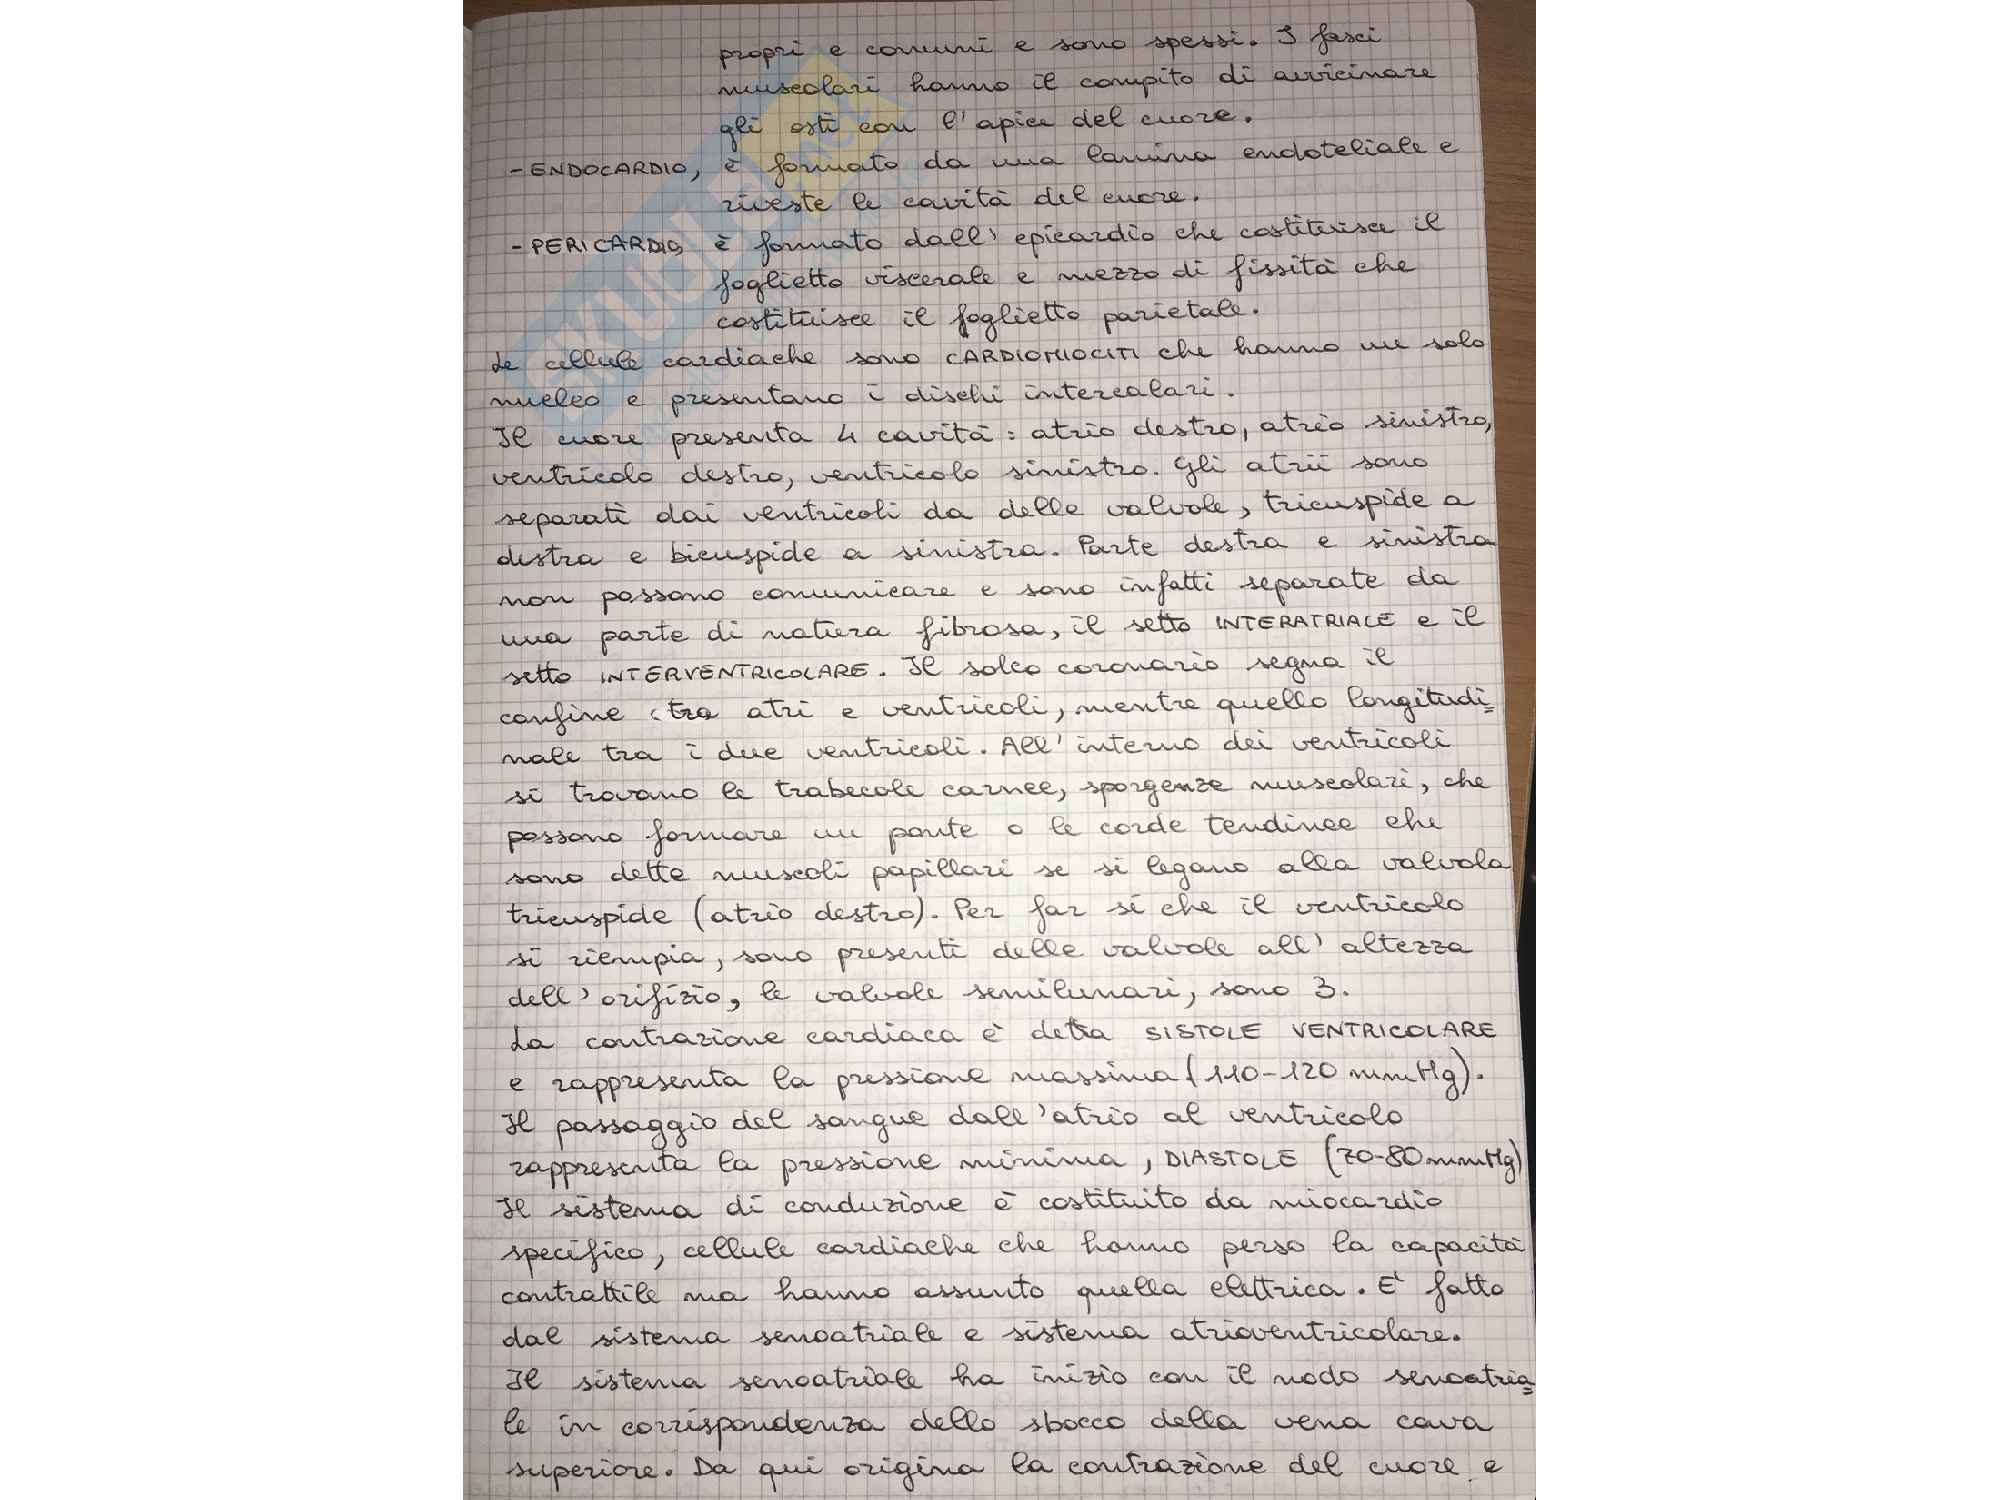 propri e comuni e sono spessi. I fasci
muscolari hanno il compito di avvicinare
gli osti con l'apice del cuore.
- ENDOCARDIO, è formato da una lamina endoteliale e
riveste le cavità del cuore.
- PERICARDIO, è formato dall'epicardio che costituisce il
foglietto viscerale e mezzo di fissità che
costituisce il foglietto parietale.
Le cellule cardiache sono CARDIOMIOCITI che hanno un solo
nucleo e presentano i dischi intercalari.
Il cuore presenta 4 cavità: atrio destro, atrio sinistro,
ventricolo destro, ventricolo sinistro. Gli atrii sono
separati dai ventricoli da delle valvole, tricuspide a
destra e bicuspide a sinistra. Parte destra e sinistra
non possono comunicare e sono infatti separate da
una parte di natura fibrosa, il setto INTERATRIALE e il
setto INTERVENTRICOLARE. Il solco coronario segna il
confine tra atri e ventricoli, mentre quello longitudi=
nale tra i due ventricoli. All'interno dei ventricoli
si trovano le trabecole carnee, sporgenze muscolari, che
possono formare un ponte o le corde tendinee che
sono dette muscoli papillari se si legano alla valvola
tricuspide (atrio destro). Per far sì che il ventricolo
si riempia, sono presenti delle valvole all'altezza
dell'orifizio, le valvole semilunari, sono 3.
La contrazione cardiaca è detta SISTOLE VENTRICOLARE
e rappresenta la pressione massima (110-120 mmHg).
Il passaggio del sangue dall'atrio al ventricolo
rappresenta la pressione minima, DIASTOLE (70-80 mmHg)
Il sistema di conduzione è costituito da miocardio
specifico, cellule cardiache che hanno perso la capacità
contrattile ma hanno assunto quella elettrica. E' fatto
dal sistema senoatriale e sistema atrioventricolare.
Il sistema senoatriale ha inizio con il nodo senoatria=
le in corrispondenza dello sbocco della vena cava
superiore. Da qui origina la contrazione del cuore e